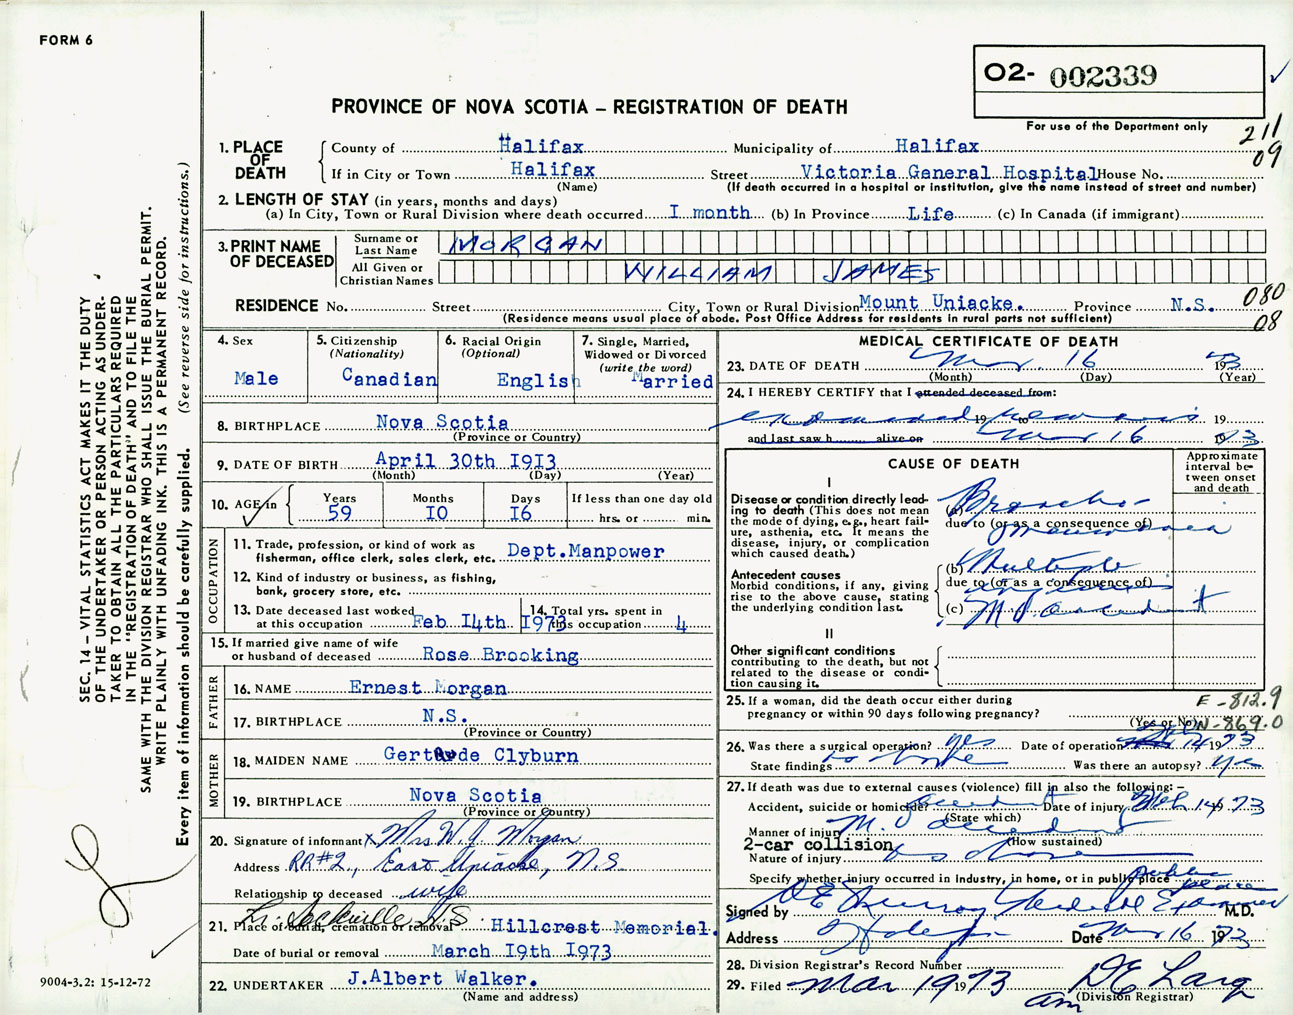 FORM 6
O2- 002339
For use of the Department only
211
09
PROVINCE OF NOVA SCOTIA – REGISTRATION OF DEATH
1. PLACE OF DEATH
County of Halifax Municipality of Halifax
If in City or Town Halifax Street Victoria General Hospital House No.
(Name) (If death occurred in a hospital or institution, give the name instead of street and number)
2. LENGTH OF STAY (in years, months and days)
(a) In City, Town or Rural Division where death occurred I month (b) In Province Life (c) In Canada (if immigrant)
3. PRINT NAME OF DECEASED
Surname or Last Name MORGAN
All Given or Christian Names WILLIAM JAMES
RESIDENCE No. Street City, Town or Rural Division Mount Uniacke. Province N.S.
(Residence means usual place of abode. Post Office Address for residents in rural parts not sufficient)
080
08
4. Sex
Male
5. Citizenship
(Nationality)
Canadian
6. Racial Origin
(Optional)
English
7. Single, Married,
Widowed or Divorced
(write the word)
Married
8. BIRTHPLACE Nova Scotia
(Province or Country)
9. DATE OF BIRTH April 30th I9I3
(Month) (Day) (Year)
10. AGE in
Years Months Days If less than one day old
59 IO I6 hrs. or min.
OCCUPATION
11. Trade, profession, or kind of work as
fisherman, office clerk, sales clerk, etc. Dept.Manpower
12. Kind of industry or business, as fishing,
bank, grocery store, etc.
13. Date deceased last worked
at this occupation Feb I4th I973
14. Total yrs. spent in
this occupation 4
15. If married give name of wife
or husband of deceased Rose Brooking
FATHER
16. NAME Ernest Morgan
17. BIRTHPLACE N.S.
(Province or Country)
MOTHER
18. MAIDEN NAME Gertrude Clyburn
19. BIRTHPLACE Nova Scotia
(Province or Country)
20. Signature of informant X Mrs W. J. Morgan
Address RR#2, East Uniacke, N.S.
Relationship to deceased wife
Lr. Sackville N.S.
21. Place of burial, cremation or removal Hillcrest Memorial.
Date of burial or removal March I9th I973
22. UNDERTAKER J.Albert Walker.
(Name and address)
MEDICAL CERTIFICATE OF DEATH
23. DATE OF DEATH Mar. 16 1973
(Month) (Day) (Year)
24. I HEREBY CERTIFY that I attended deceased from:
examined 19 to remains 19
and last saw h alive on Mar 16 1973
CAUSE OF DEATH
Approximate interval between onset and death
I
Disease or condition directly leading to death (This does not mean the mode of dying, e.g., heart failure, asthenia, etc. It means the disease, injury, or complication which caused death.)
(a) Broncho-
due to (or as a consequence of)
pneumonia
Antecedent causes
Morbid conditions, if any, giving rise to the above cause, stating the underlying condition last.
(b) Multiple
due to (or as a consequence of)
injuries
(c) M.V. accident
II
Other significant conditions
contributing to the death, but not related to the disease or condition causing it.
25. If a woman, did the death occur either during
pregnancy or within 90 days following pregnancy?
(Yes or No)
E-812.9
N-869.0
26. Was there a surgical operation? yes Date of operation Feb 14 1973
State findings as above Was there an autopsy? yes
27. If death was due to external causes (violence) fill in also the following:-
Accident, suicide or homicide? accident Date of injury Feb 14 1973
(State which)
Manner of injury M.V. accident
2-car collision (How sustained)
Nature of injury as above
Specify whether injury occurred in industry, in home, or in public place public place
Signed by D E Murray Medical Examiner M.D.
Address Halifax Date Mar 16 1973
28. Division Registrar's Record Number
29. Filed Mar 19 1973 D E Larg
am (Division Registrar)
SEC. 14 – VITAL STATISTICS ACT MAKES IT THE DUTY
OF THE UNDERTAKER OR PERSON ACTING AS UNDER-
TAKER TO OBTAIN ALL THE PARTICULARS REQUIRED
IN THE "REGISTRATION OF DEATH" AND TO FILE THE
SAME WITH THE DIVISION REGISTRAR WHO SHALL ISSUE THE BURIAL PERMIT.
WRITE PLAINLY WITH UNFADING INK. THIS IS A PERMANENT RECORD.
Every item of information should be carefully supplied. (See reverse side for instructions.)
9004-3.2: 15-12-72